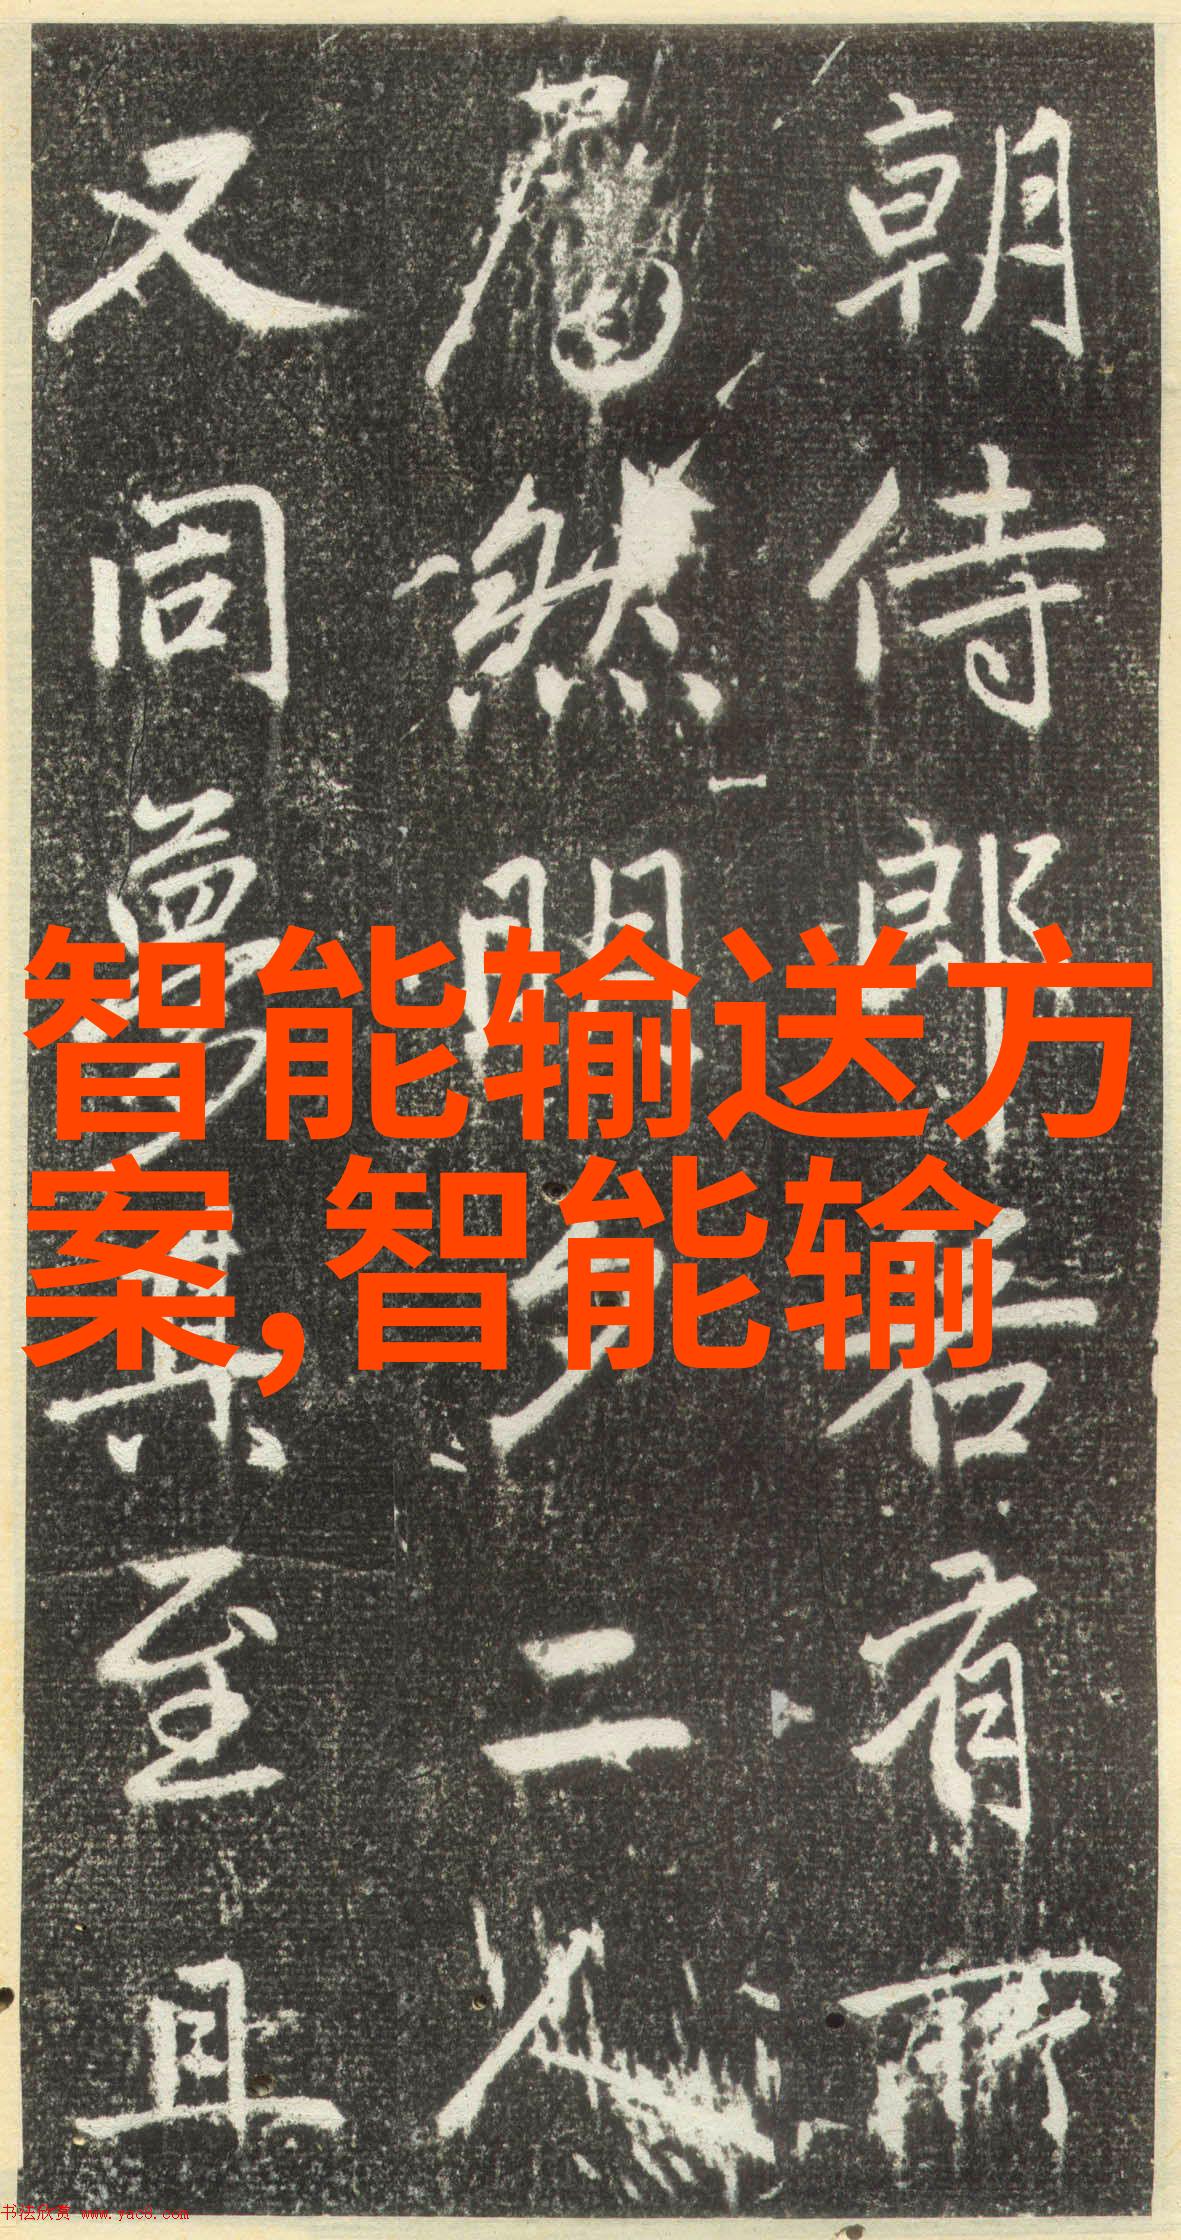 智能输送方
案,智能输
朝侍郎君有所
然明夕二人
又同夢其至且
书法欣赏 www.yac8.com